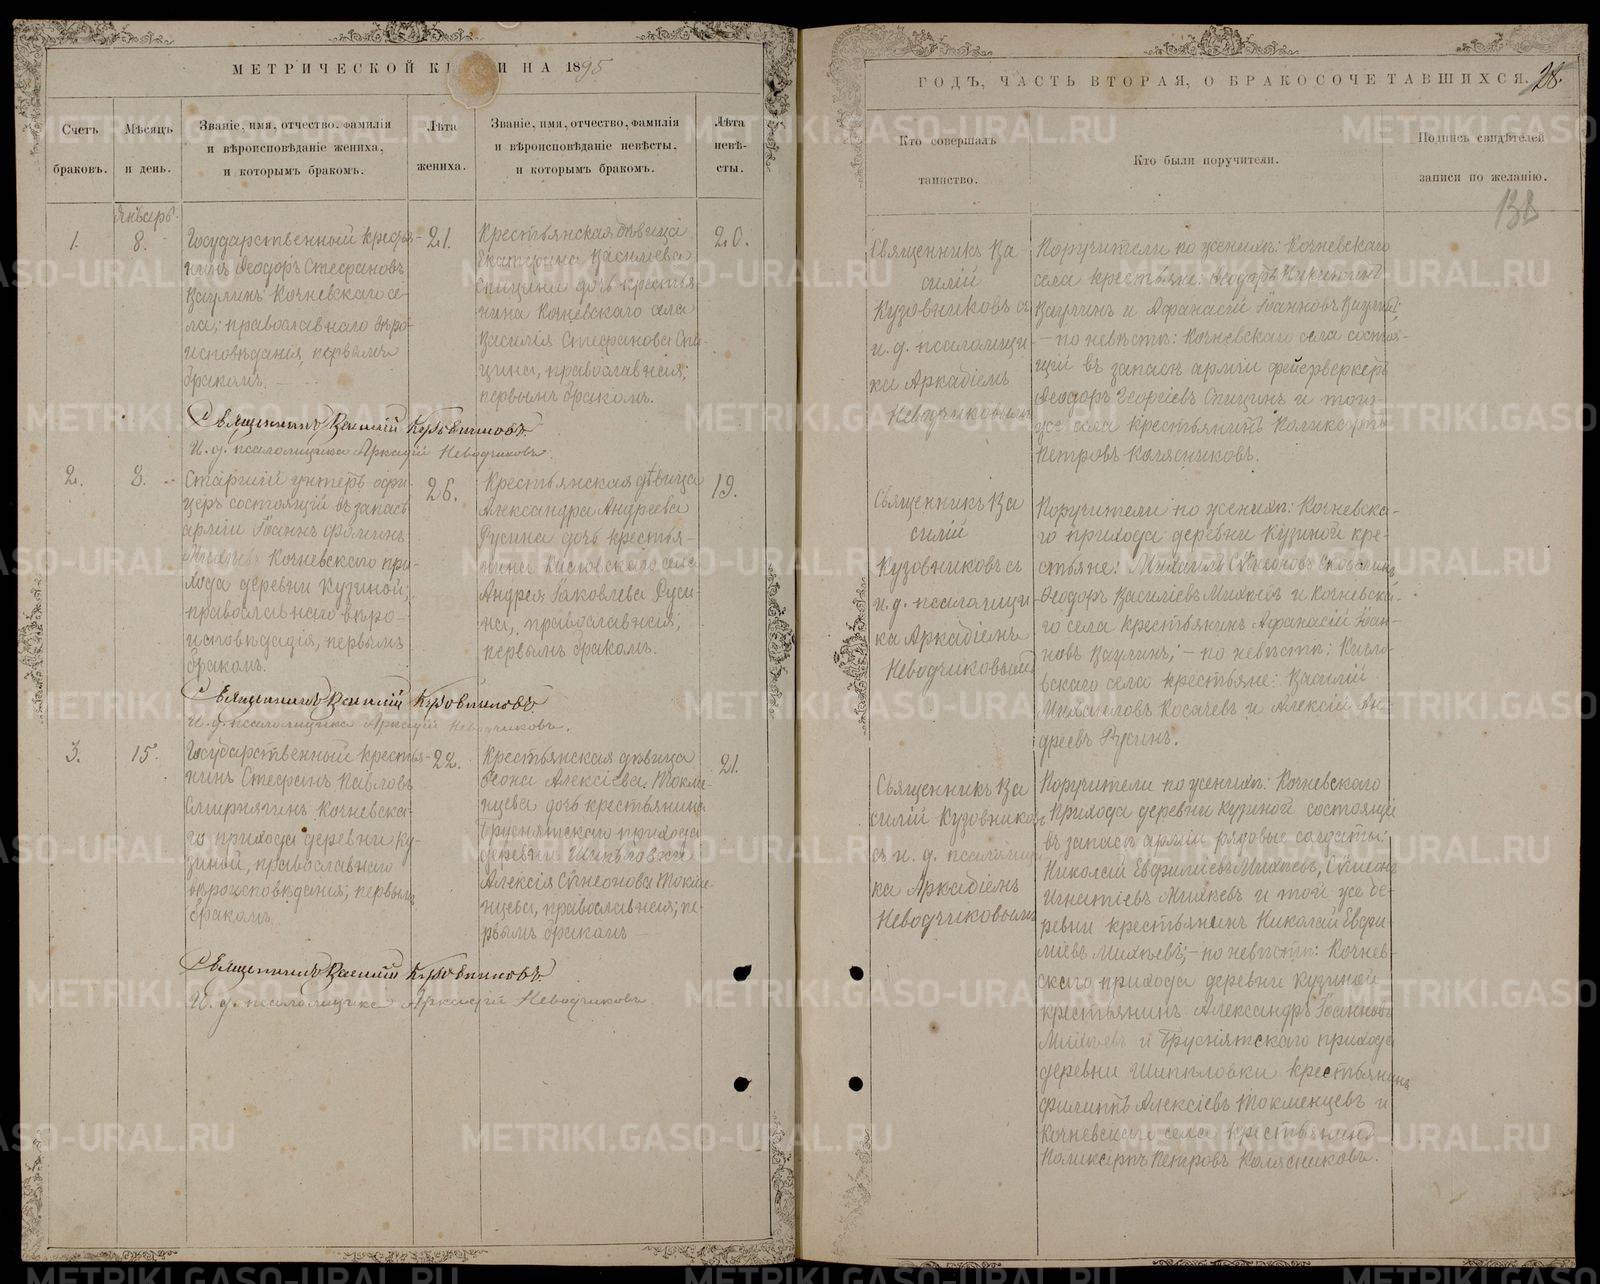 МЕТРИЧЕСКОЙ КНИГИ НА 1895
Счетъ
браковъ.
Мѣсяцъ
и день.
Званіе, имя, отчество, фамилія
и вѣроисповѣданіе жениха,
и которымъ бракомъ.
Лѣта
жениха.
Званіе, имя, отчество, фамилія
и вѣроисповѣданіе невѣсты,
и которымъ бракомъ.
Лѣта
невѣ-
сты.
1.
8.
Государственный кресть-
янинъ Ѳеодоръ Стефановъ
Ваулинъ Кочневскаго се-
ла; православнаго вѣро-
исповѣданія, первымъ
бракомъ.
21.
Крестьянская дѣвица
Екатерина Васильева
Спицина дочь крестья-
нина Кочневскаго села
Василія Стефанова Спи-
цина, православная;
первымъ бракомъ.
20.
Священникъ Василій Кузовниковъ.
И. д. псаломщика Аркадій Неводчиковъ.
2.
8.
Старшій унтеръ офи-
церъ состоящій въ запасѣ
арміи Іоаннъ
Кочневскаго при-
хода деревни Кузиной;
православнаго вѣро-
исповѣдація, первымъ
бракомъ.
26.
Крестьянская дѣвица
Александра Андреева
Русина дочь крестья-
нина Кисловскаго села
Андрея Іаковлева Руси-
на, православная;
первымъ бракомъ.
19.
Священникъ Василій Кузовниковъ
И. д. псаломщика Аркадій Неводчиковъ.
3.
15.
Государственный крестья-
нинъ Стефанъ Павловъ
Смирнягинъ Кочневска-
го прихода деревни Ку-
зиной, православнаго
вѣроисповѣданія, первымъ
бракомъ.
22.
Крестьянская дѣвица
Алексіева Токме-
нцева дочь крестьянина
Бруснятскаго прихода
деревни Шипѣловки
Алексія Сѵмеонова Токме-
нцева, православная; пе-
рвымъ бракомъ
21.
Священникъ Василій Кузовниковъ.
И. д. псаломщика Аркадій Неводчиковъ.
ГОДЪ, ЧАСТЬ ВТОРАЯ, О БРАКОСОЧЕТАВШИХСЯ.
28.
Кто совершалъ
таинство.
Кто были поручители.
Подпись свидѣтелей
записи по желанію.
138
Священникъ Ва
силій
Кузовниковъ съ
и. д. псаломщи
ка Аркадіемъ
Неводчиковымъ
Поручители по женихѣ: Кочневскаго
села крестьяне: Ѳеодоръ Никитинъ
Ваулинъ и Афанасій Іоанновъ Ваулинъ;
- по невѣстѣ: Кочневскаго села состоя-
щій въ запасѣ арміи фейерверкеръ
Ѳеодоръ Георгіевъ Спицинъ и того
же села крестьянинъ Поликарпъ
Петровъ Колясниковъ.
Священникъ Ва
силій
Кузовниковъ съ
и. д. псаломщи
ка Аркадіемъ
Неводчиковымъ
Поручители по женихѣ: Кочневска-
го прихода деревни Кузиной кре-
стьяне: Михаилъ Сѵмеоновъ
Ѳеодоръ Василіевъ Михѣевъ и Кочневска-
го села крестьянинъ Афанасій Іоан-
новъ Ваулинъ; - по невѣстѣ: Кисло-
вскаго села крестьяне: Василій
Михаиловъ Косачевъ и Алексій Ан-
дреевъ Русинъ.
Священникъ Ва
силій Кузовников
съ и. д. псаломщи
ка Аркадіемъ
Неводчиковымъ
Поручители по женихѣ: Кочневскаго
прихода деревни Кузиной состоящіе
въ запасѣ арміи рядовые солдаты:
Николай Евфиміевъ Михѣевъ, Сѵмеонъ
Игнатіевъ Михѣевъ и той же де-
ревни крестьянинъ Николай Евфи-
міевъ Михѣевъ; - по невѣстѣ: Кочнев-
скаго прихода деревни Кузиной
крестьянинъ Александръ Іоанновъ
Михѣевъ и Бруснятскаго прихода
деревни Шипѣловки крестьянинъ
Филиппъ Алексіевъ Токменцевъ и
Кочневскаго села крестьянинъ
Поликарпъ Петровъ Колясниковъ.
METRIKI.GASO-URAL.RU